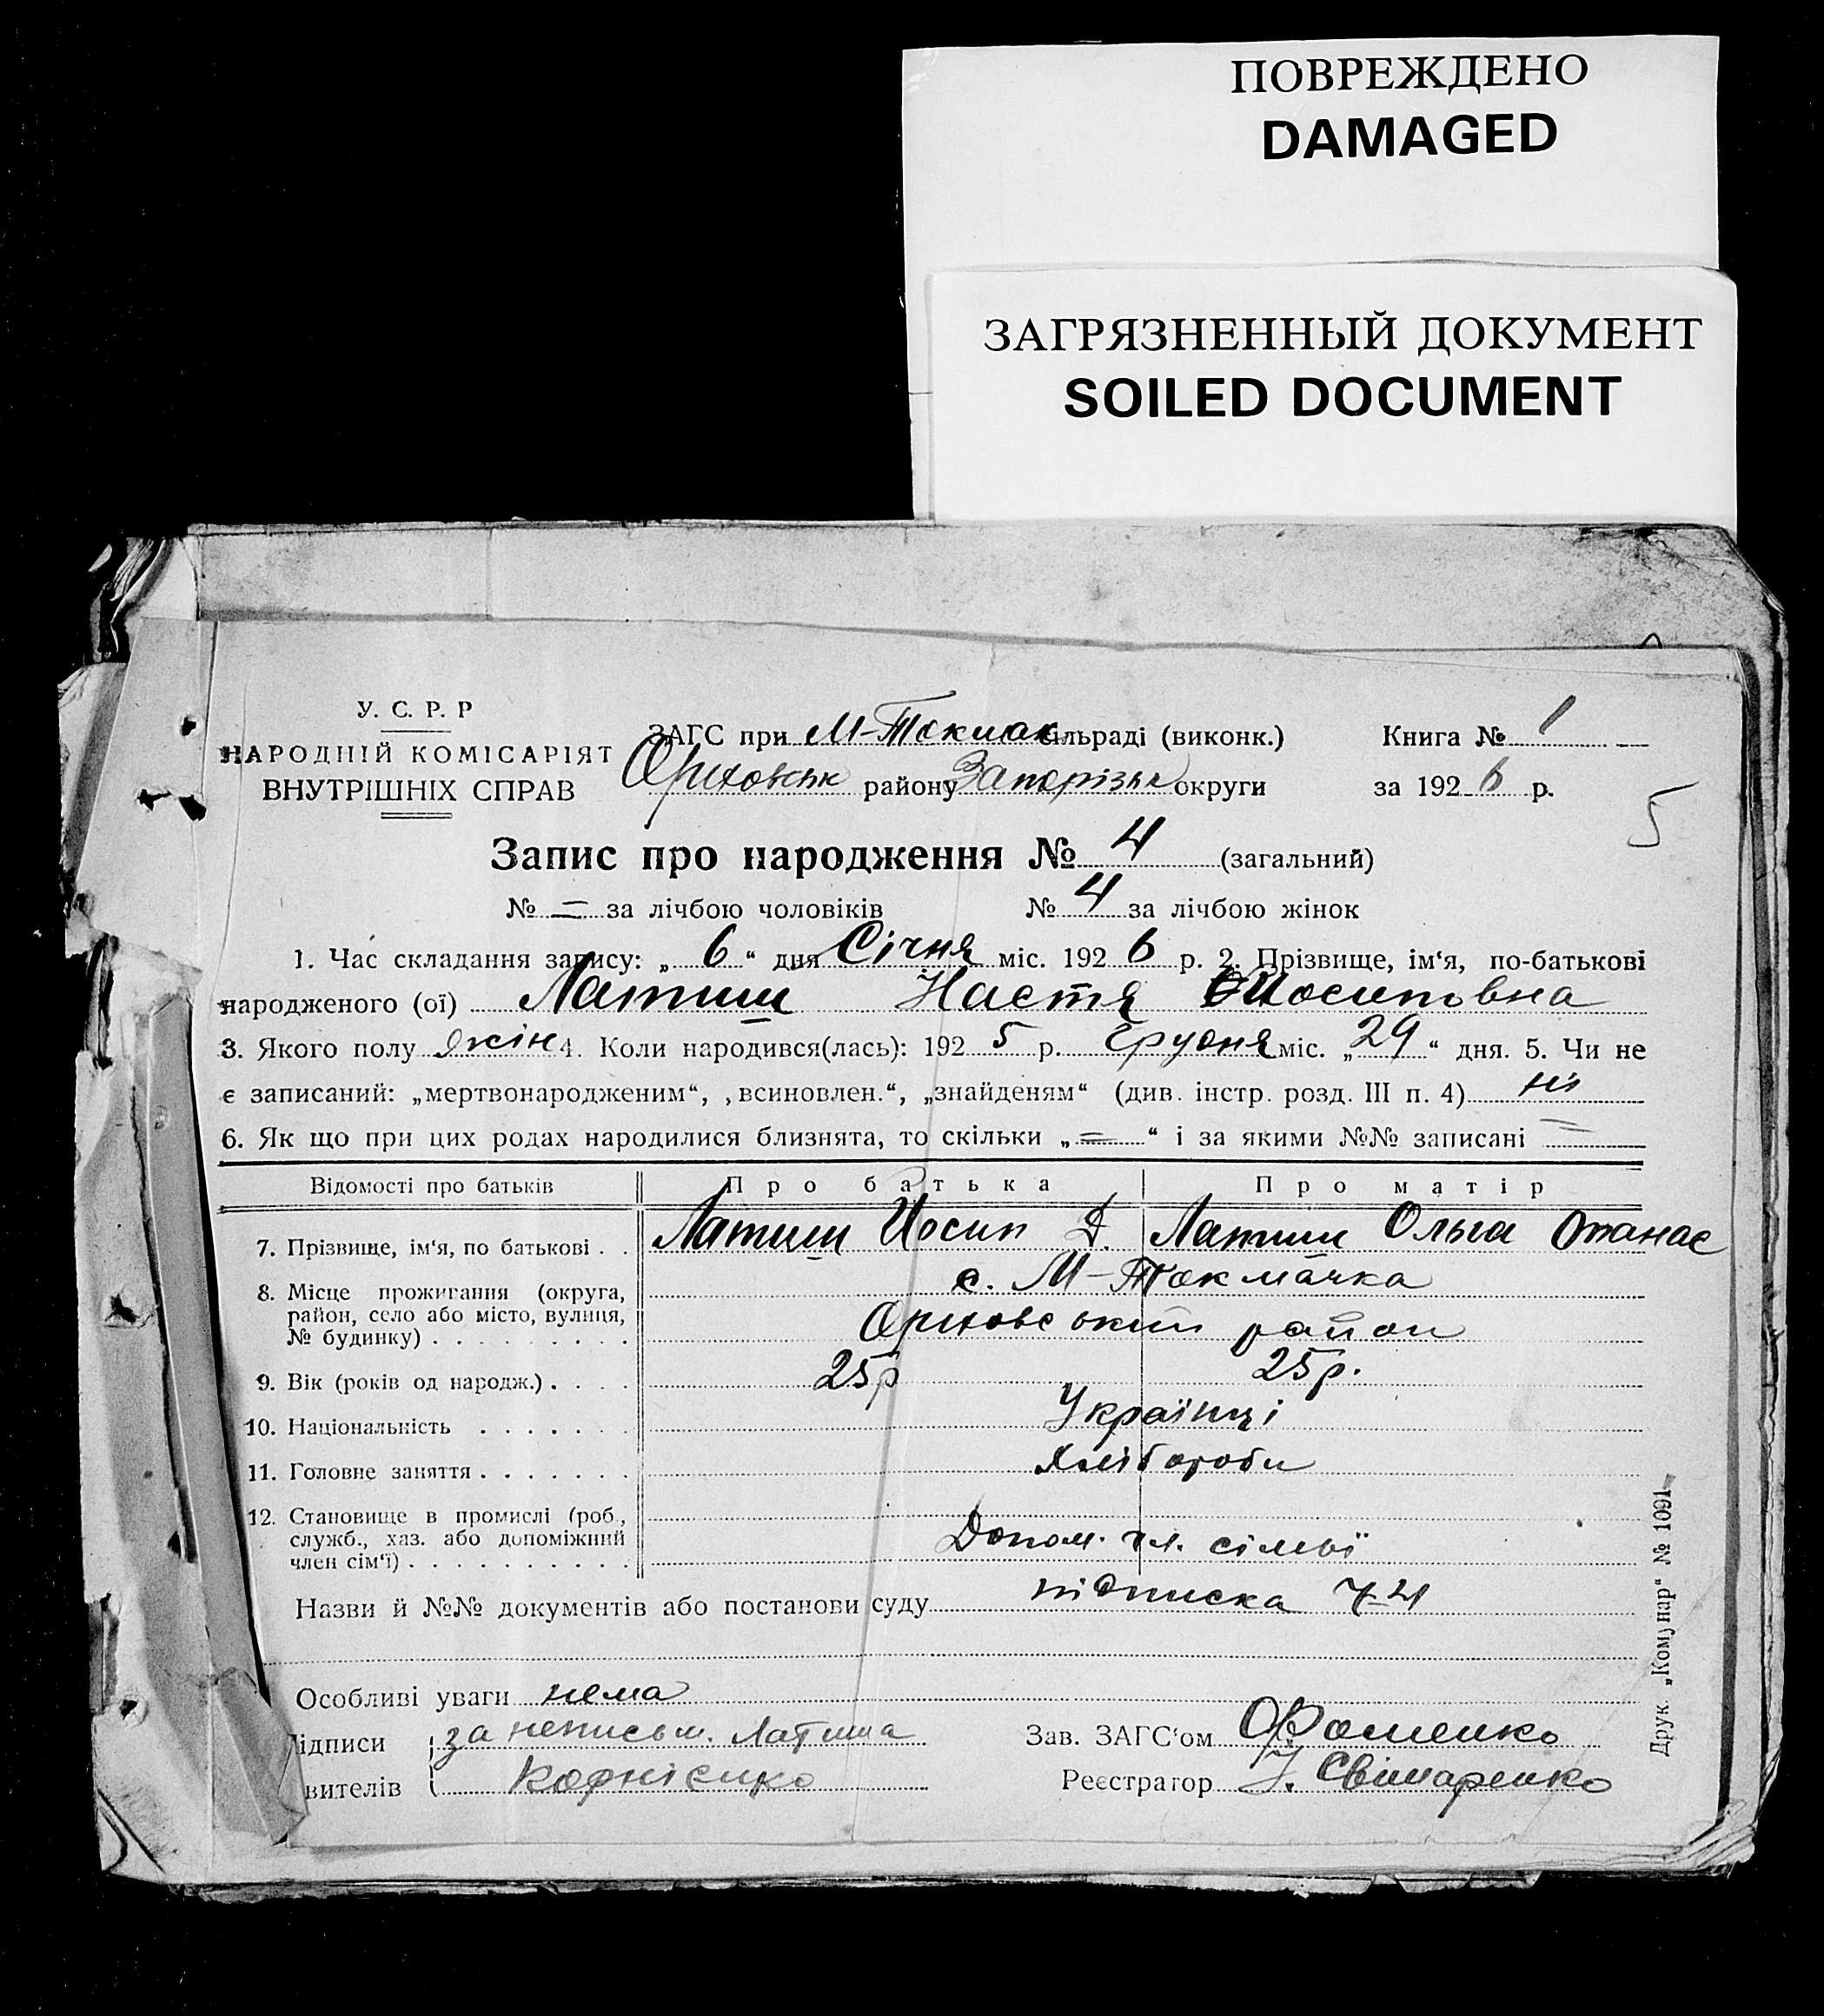 ПОВРЕЖДЕНО
DAMAGED
ЗАГРЯЗНЕННЫЙ ДОКУМЕНТ
SOILED DOCUMENT
У. С. Р. Р
НАРОДНІЙ КОМІСАРІЯТ
ВНУТРІШНІХ СПРАВ
ЗАГС при М-Токмак сільраді (виконк.)
Оріховськ району Запорізьк округи
Книга № 1
за 1926 р.
5
Запис про народження № 4 (загальний)
№ = за лічбою чоловіків № 4 за лічбою жінок
1. Час складання запису: „6“ дня Січня міс. 1926 р. 2. Прізвище, ім‘я, по-батькові
народженого (ої) Латиш Настя Йосиповна
3. Якого полу жін 4. Коли народився(лась): 1925 р. Грудня міс. „29“ дня. 5. Чи не
є записаний: „мертвонародженим“, „всиновлен.“, „знайденям“ (див. інстр. розд. III п. 4) ні
6. Як що при цих родах народилися близнята, то скільки „=“ і за якими №№ записані =
Відомості про батьків Про батька Про матір
7. Прізвище, ім‘я, по батькові . . Латиш Йосип Д. Латиш Ольга Опанас
8. Місце прожигання (округа, район, село або місто, вулиця, № будинку) с. М-Токмачка
Оріховський район
9. Вік (років од народж.) . . . . 25р 25р.
10. Національність Українці
11. Головне заняття Хлібороби
12. Становище в промислі (роб., служб., хаз. або допоміжний член сім‘ї) Допом. чл. сімьї
Назви й №№ документів або постанови суду підписка 7-4
Особливі уваги нема
ідписи за неписьм. Латиша
вителів Корнієнко
Зав. ЗАГС‘ом Фоменко
Реєстратор Свінаренко
Друк. „Комунар“ № 1091